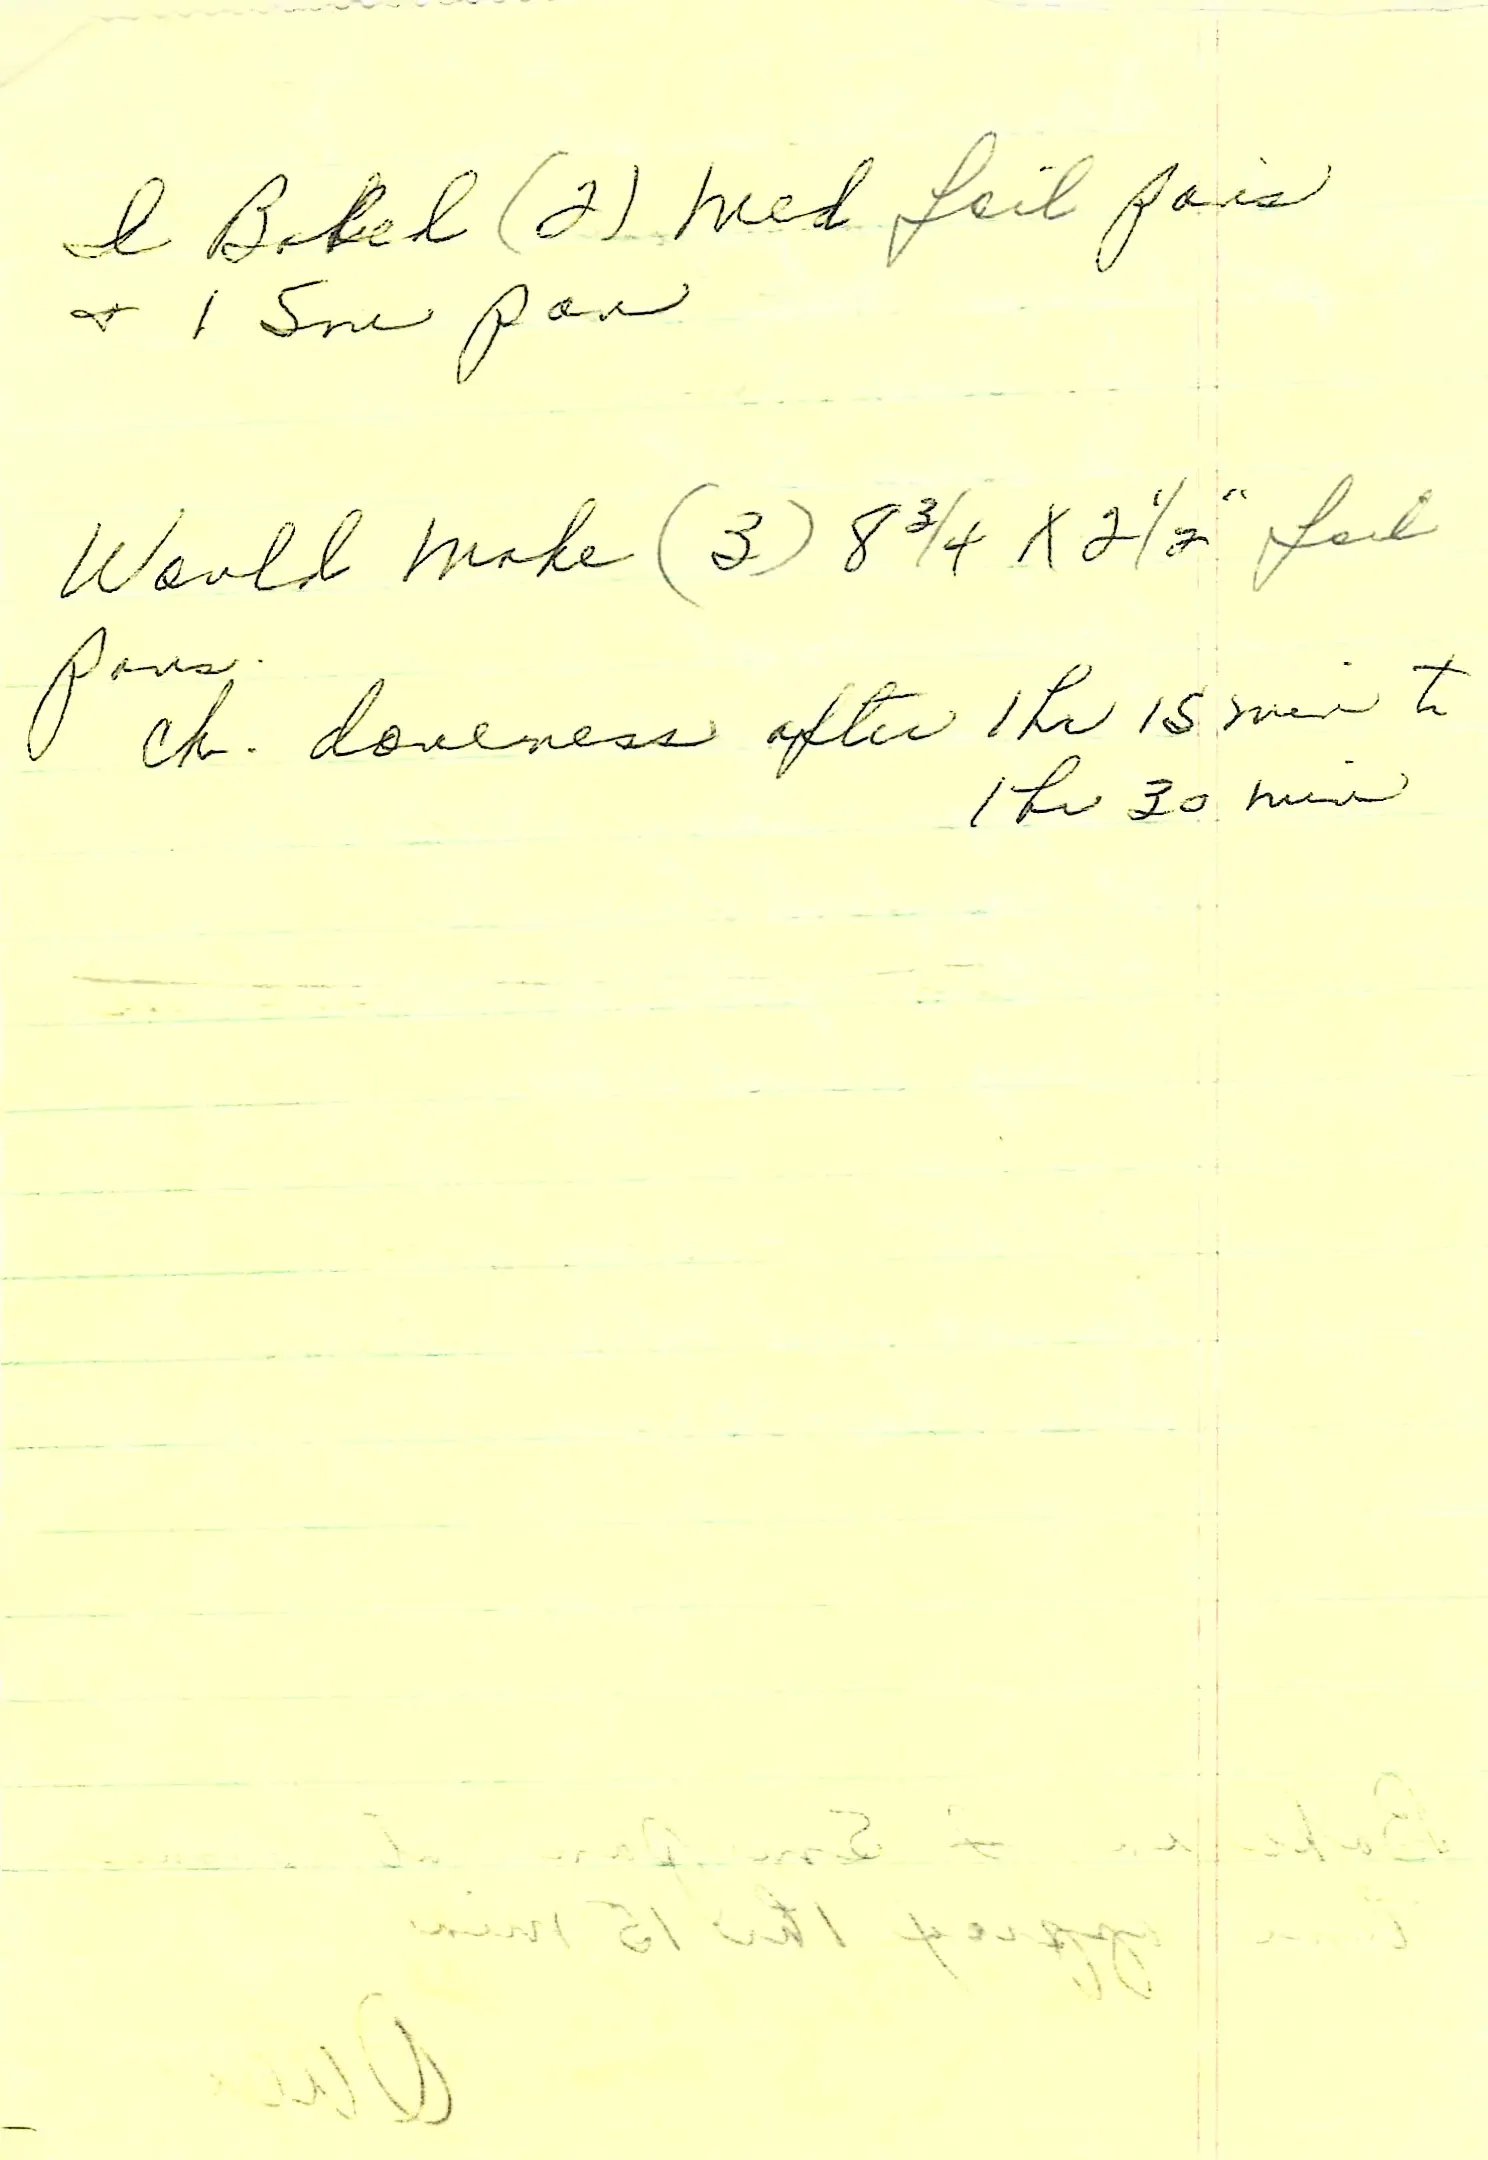 I Baked (2) Med foil pans
+ 1 Sm pan
Would make (3) 8 3/4 X 2 1/2" foil
pans.
ch. doneness after 1 hr 15 min to
1 hr 30 min
Sm pan at
approx 1 hr 15 min